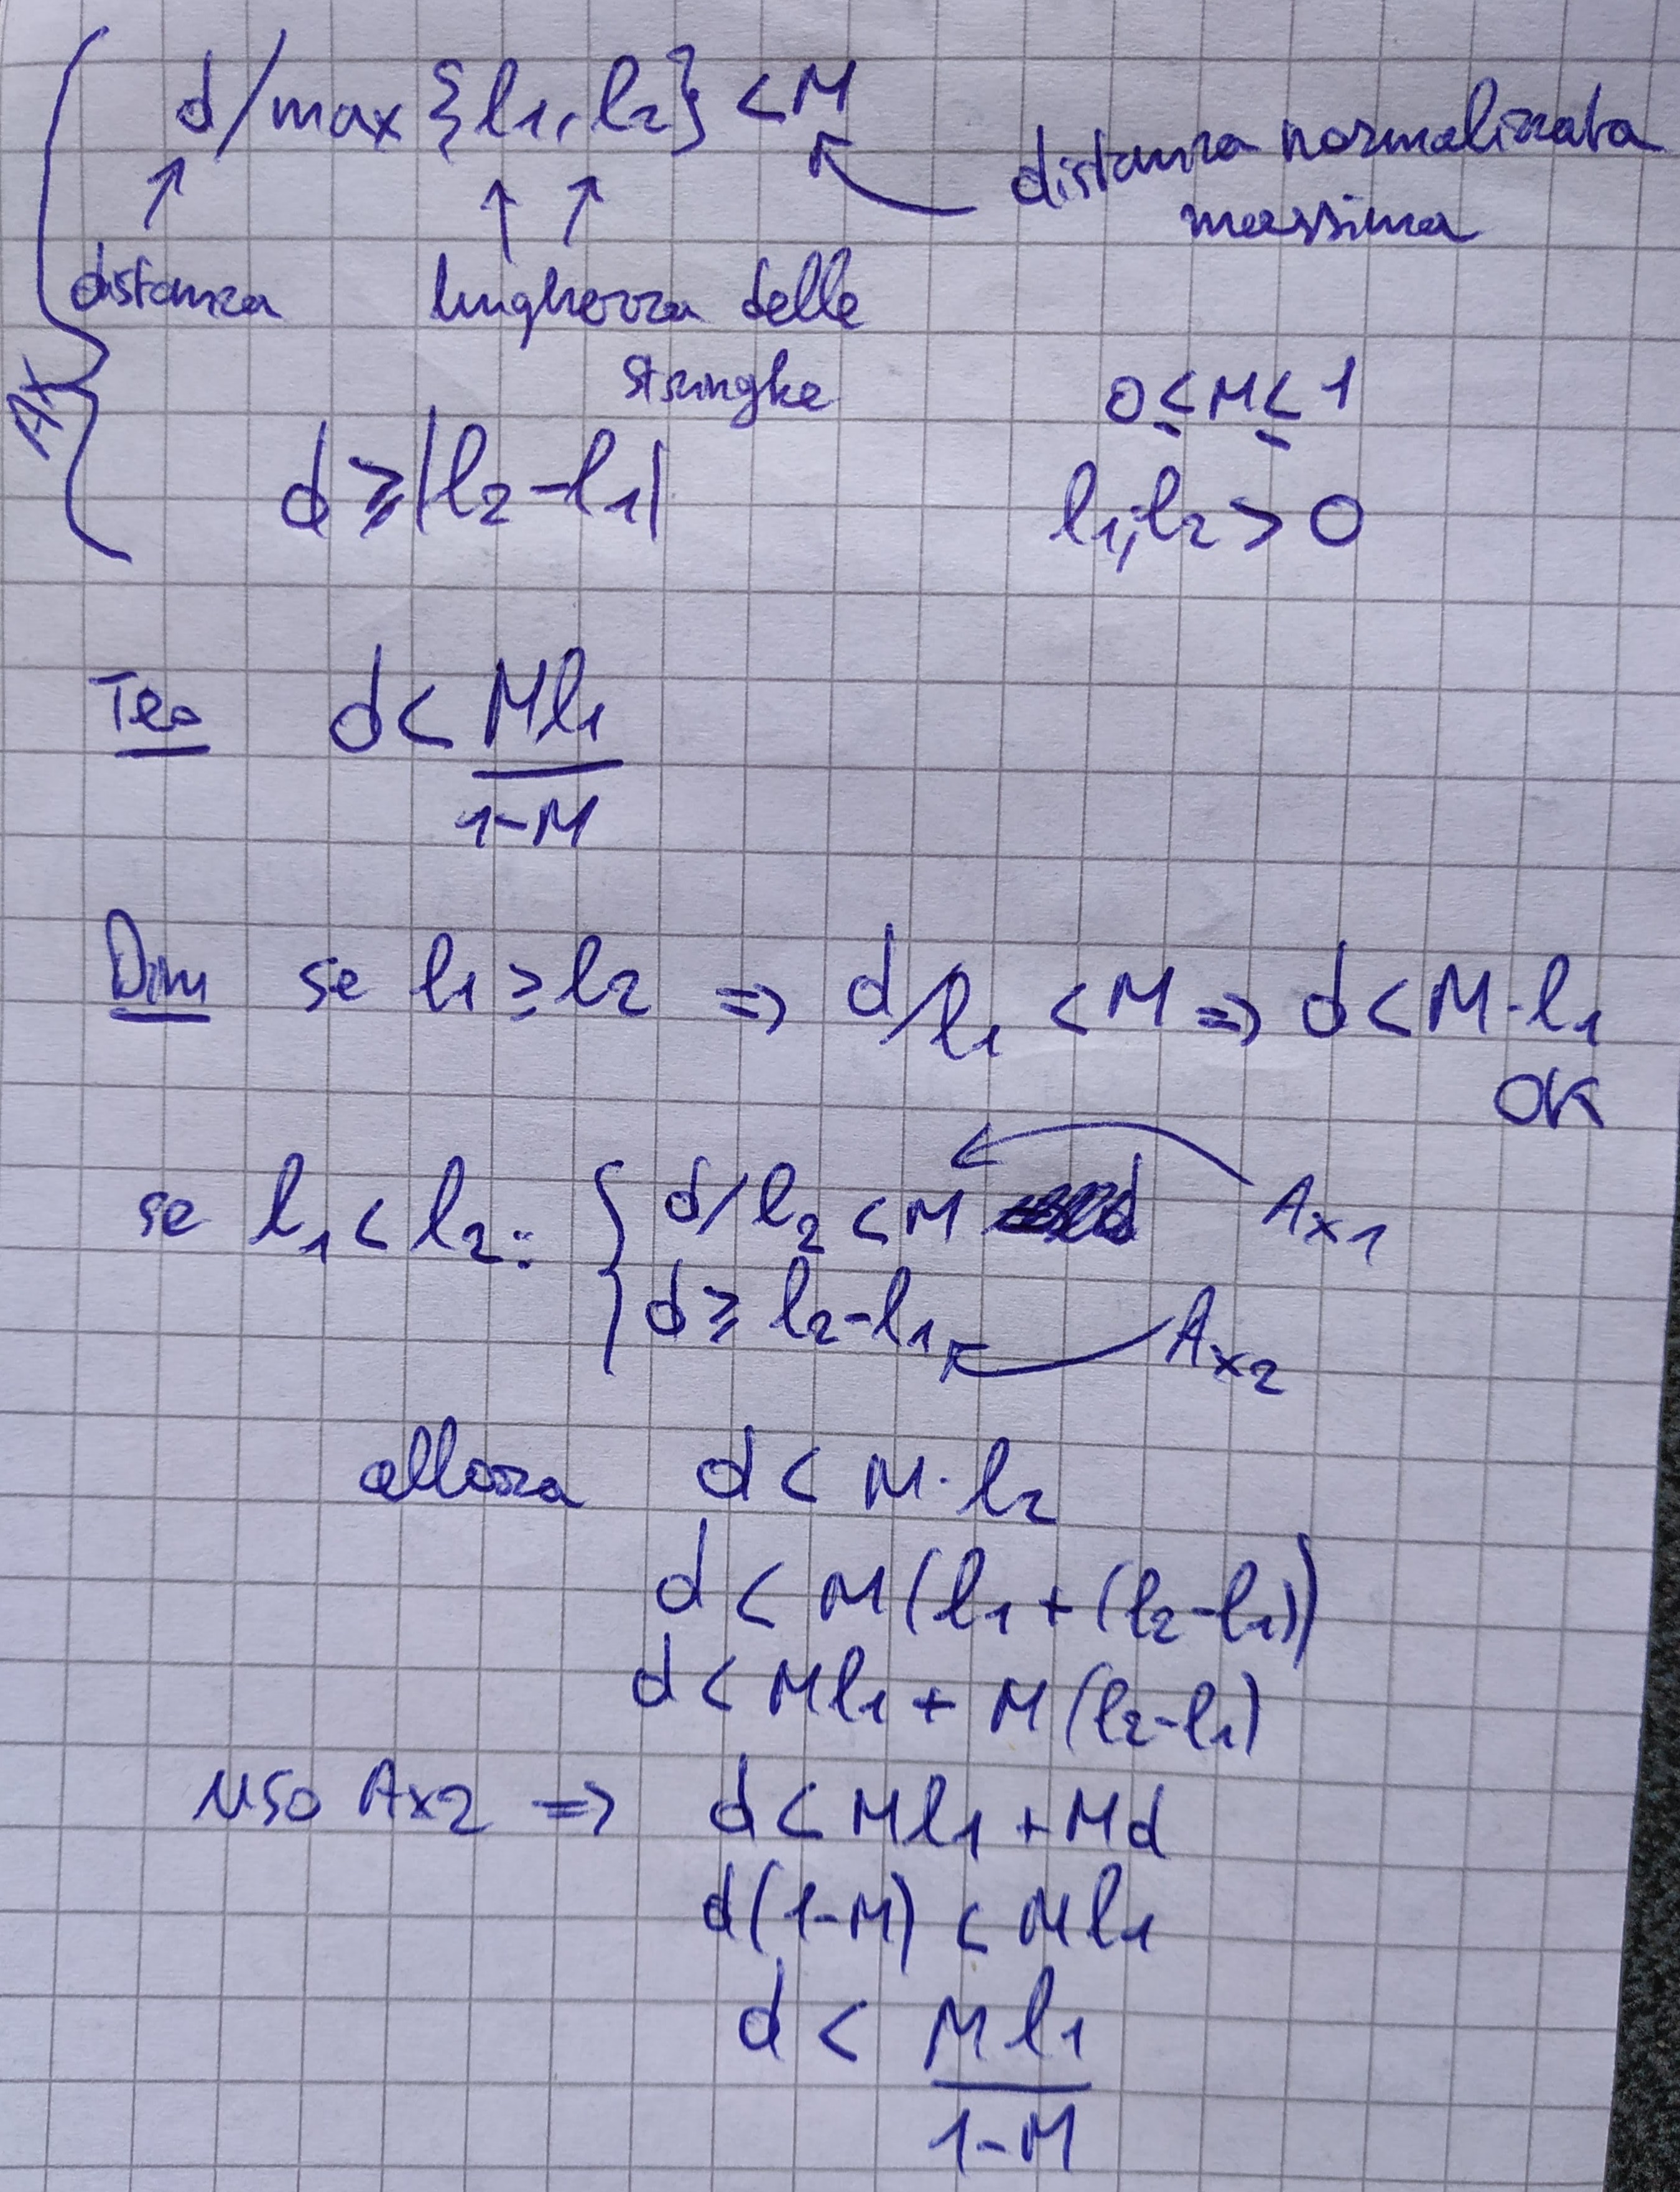 d/max{l1, l2} < M
distanza normalizzata
massima
distanza lunghezza delle
stringhe
Ax
0 ≤ M ≤ 1
d ≥ |l2-l1|
l1, l2 > 0
Teo d < Ml1/1-M
Dim se l1 ≥ l2 => d/l1 < M => d < M·l1
OK
se l1 < l2: { d/l2 < M Ax1
d ≥ l2-l1 Ax2
allora d < M·l2
d < M(l1+(l2-l1))
d < Ml1 + M(l2-l1)
uso Ax2 => d < Ml1 + Md
d(1-M) < Ml1
d < Ml1/1-M